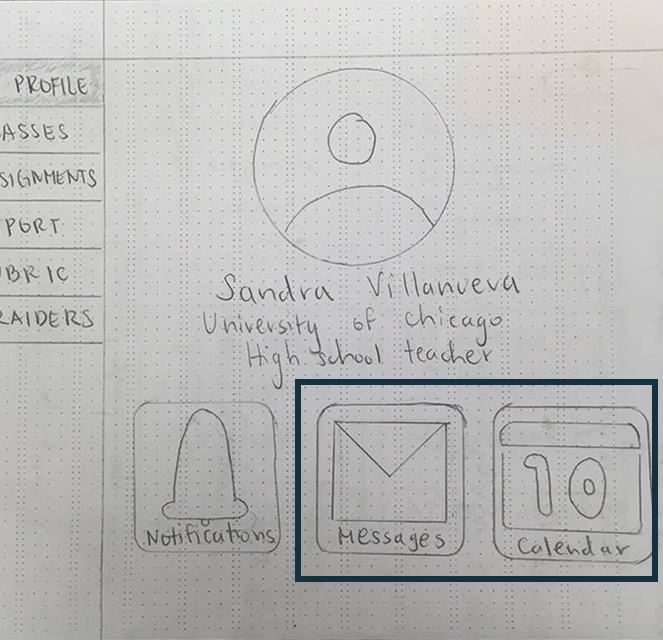 PROFILE
ASSES
SIGNMENTS
PORT
BRIC
RAIDERS
Sandra Villanueva
University of chicago
High school teacher
Notifications
Messages
10
Calendar